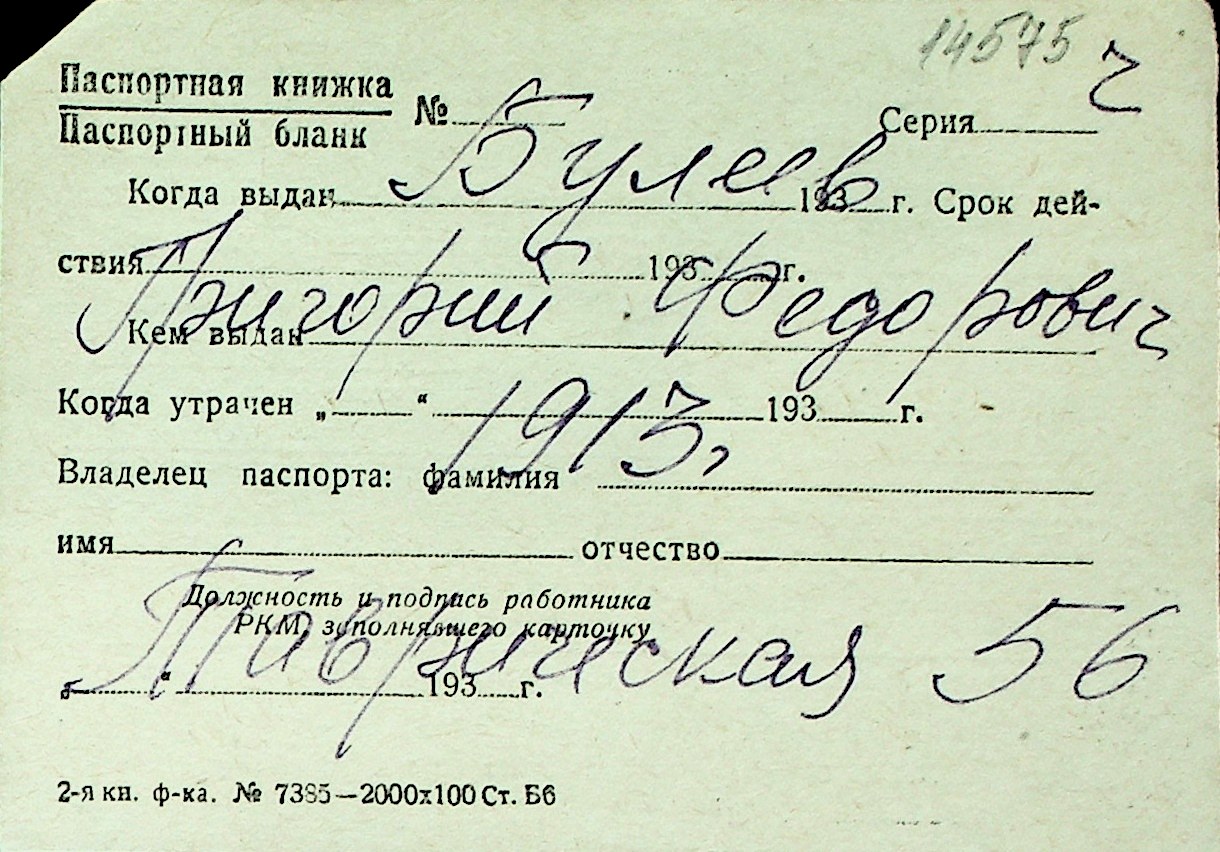 14575 ч
Паспортная книжка
Паспортный бланк № Серия
Булеев
Когда выдан 193 г. Срок дей-
ствия 193 г.
Григорий Федорович
Кем выдан
Когда утрачен „ “ 193 г.
1913,
Владелец паспорта: фамилия
имя отчество
Должность и подпись работника
РКМ, заполнявшего карточку
Таврическая 56
„ “ 193 г.
2-я кн. ф-ка. № 7385—2000х100 Ст. Б6